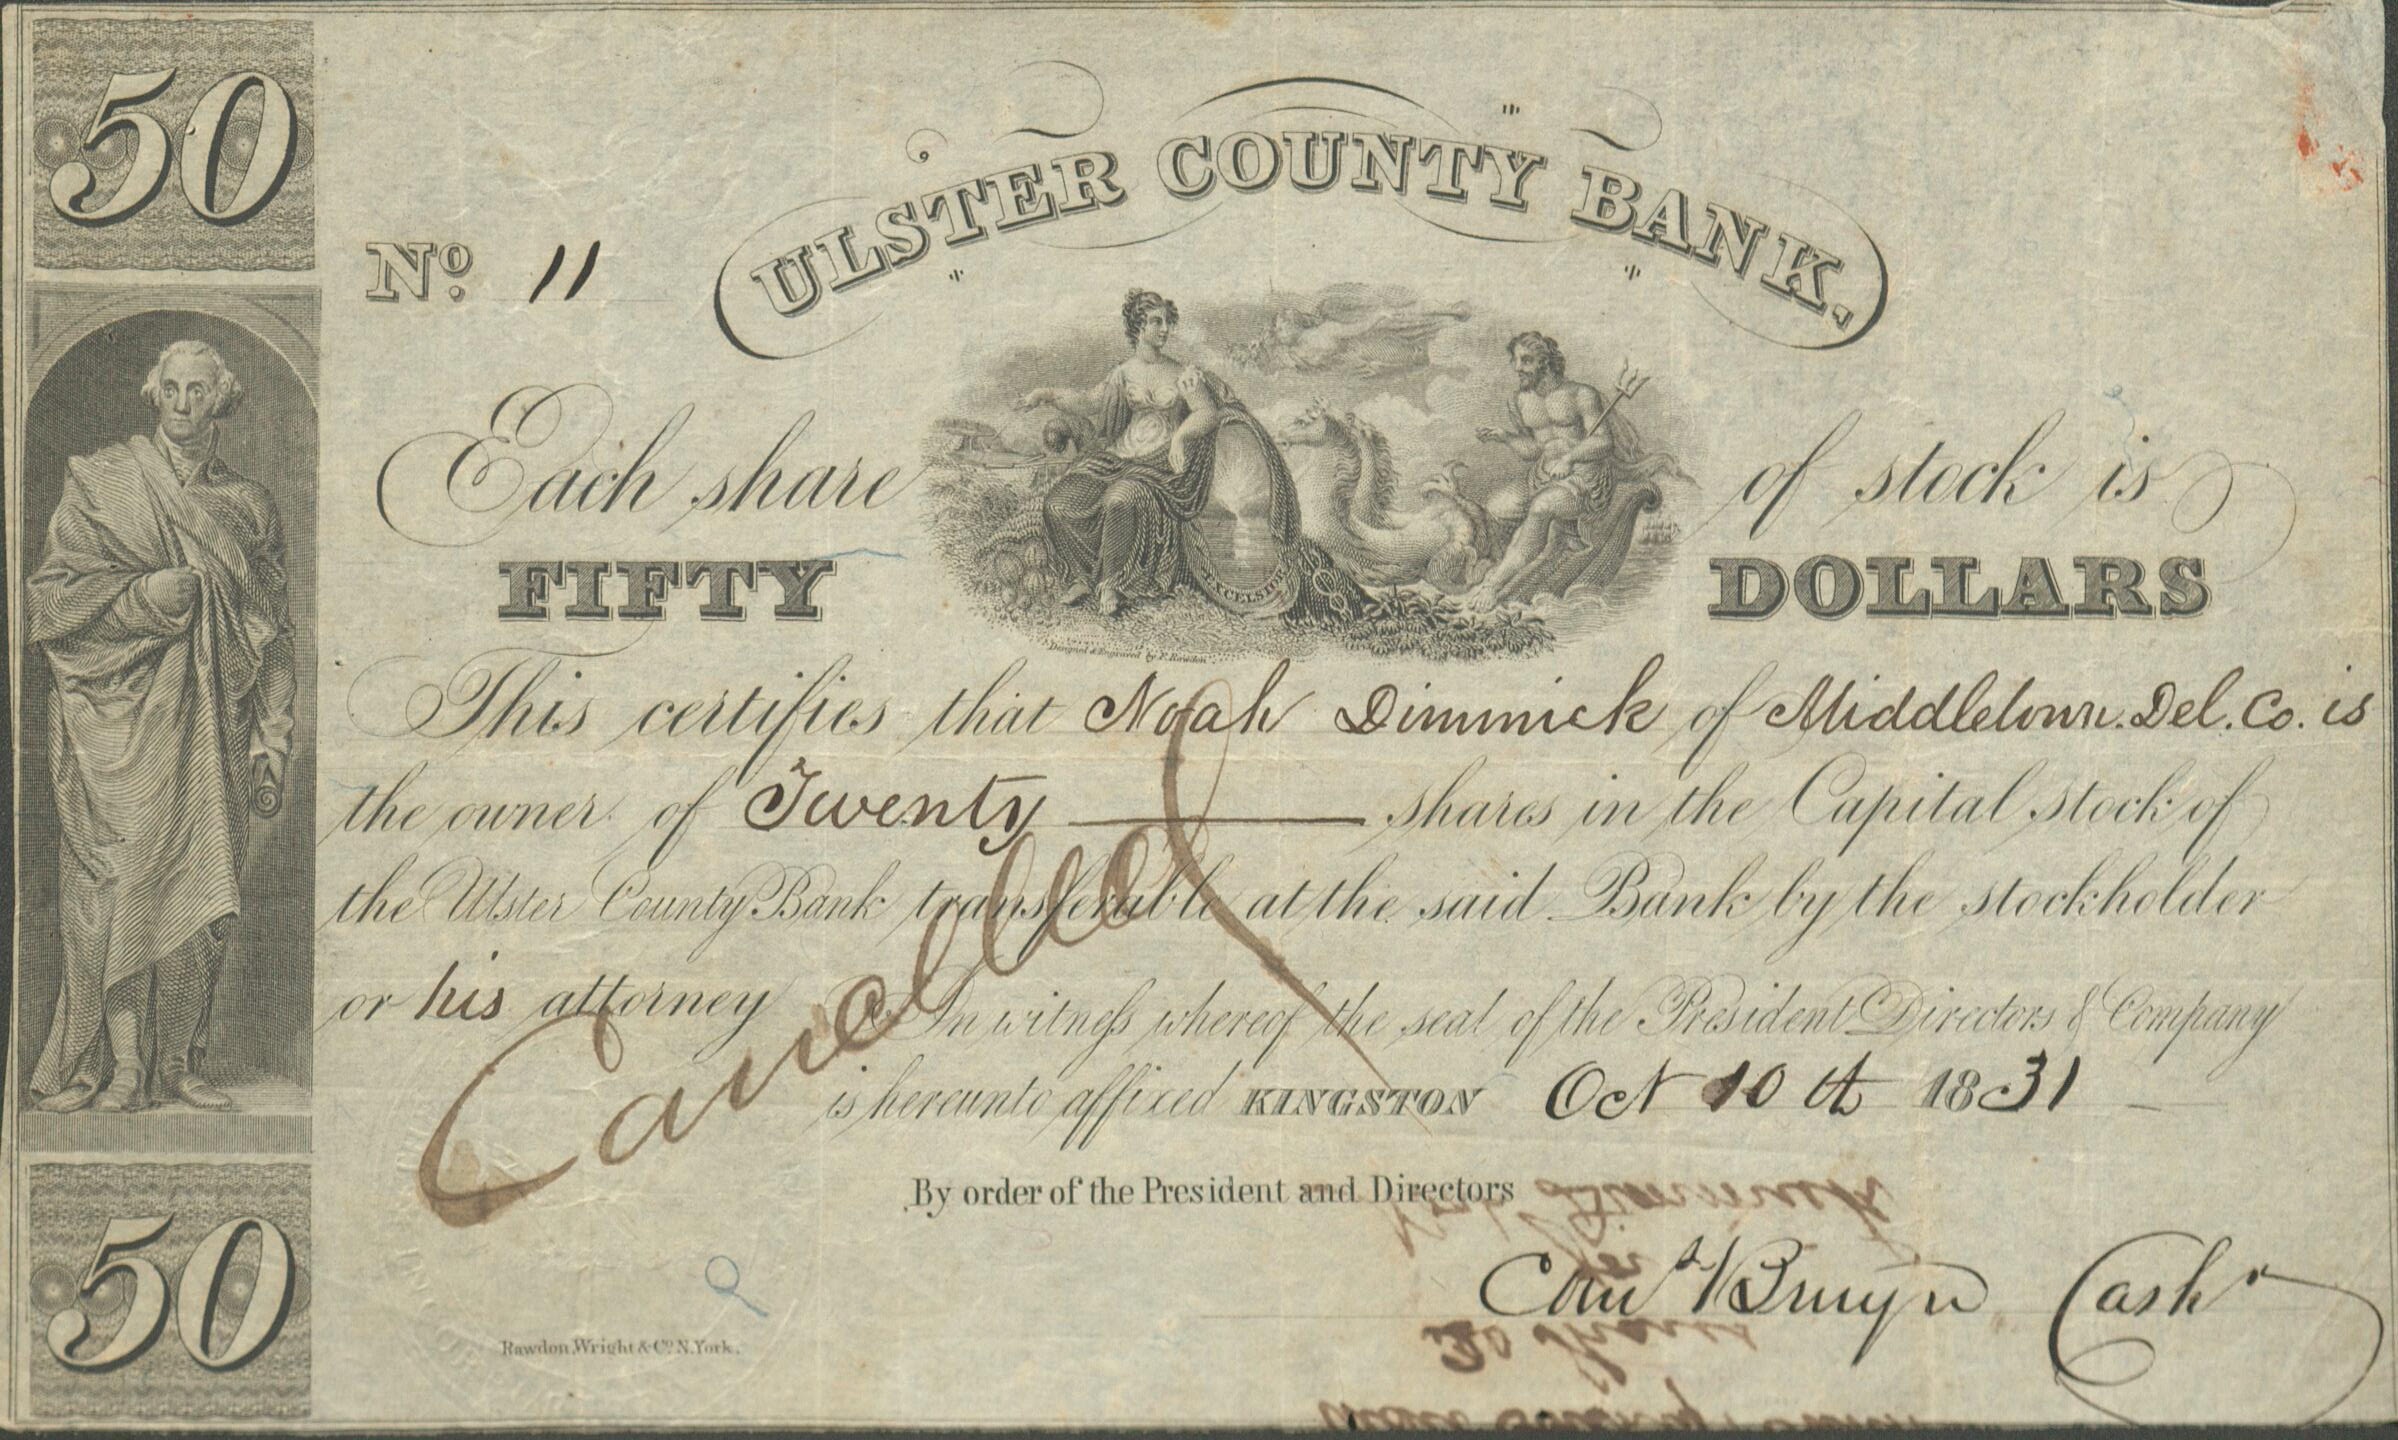 50
ULSTER COUNTY BANK.
No. 11
Each share of stock is
FIFTY DOLLARS
EXCELSIOR
Designed & Engraved by F. Rawdon
This certifies that Noah Dimmick of Middletown. Del. Co. is
the owner of Twenty shares in the Capital stock of
the Ulster County Bank transferable at the said Bank by the stockholder
or his attorney In witness whereof the seal of the President Directors & Company
is hereunto affixed KINGSTON Oct 10th 1831
Cancelled
By order of the President and Directors
Bruyn Cashr
50
Rawdon, Wright & Co. N. York.